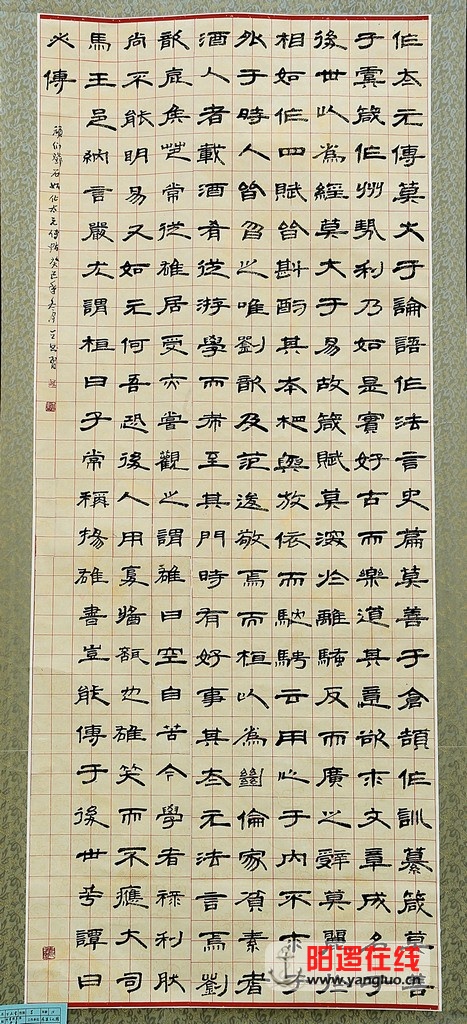 作太元傳莫大于論語作法言史篇莫善于倉頡作訓纂箴莫善
于虞箴作州勢利乃如是實好古而樂道其意欲求文章成名于
後世以為經莫大于易故箴賦莫深於離騷反而廣之辭莫麗於
相如作四賦皆斟酌其本相與放依而馳騁云用心于內不求于
外于時人皆曶之唯劉歆及范逡敬焉而桓以為絕倫家項素者
酒人者載酒肴從游學而希至其門時有好事其太元法言焉劉
歆庭侯芭常從雄居受亦嘗觀之謂雄曰空自苦今學者祿利耿
尚不能明易又如元何吾恐後人用覆醬瓿也雄笑而不應大司
馬王邑納言嚴尤謂桓曰子常稱揚雄書豈能傳于後世乎譚曰
必傳
頑伯鄧石如作太元傳帖癸巳年冬月王習
阳逻在线
www.yangluo.com